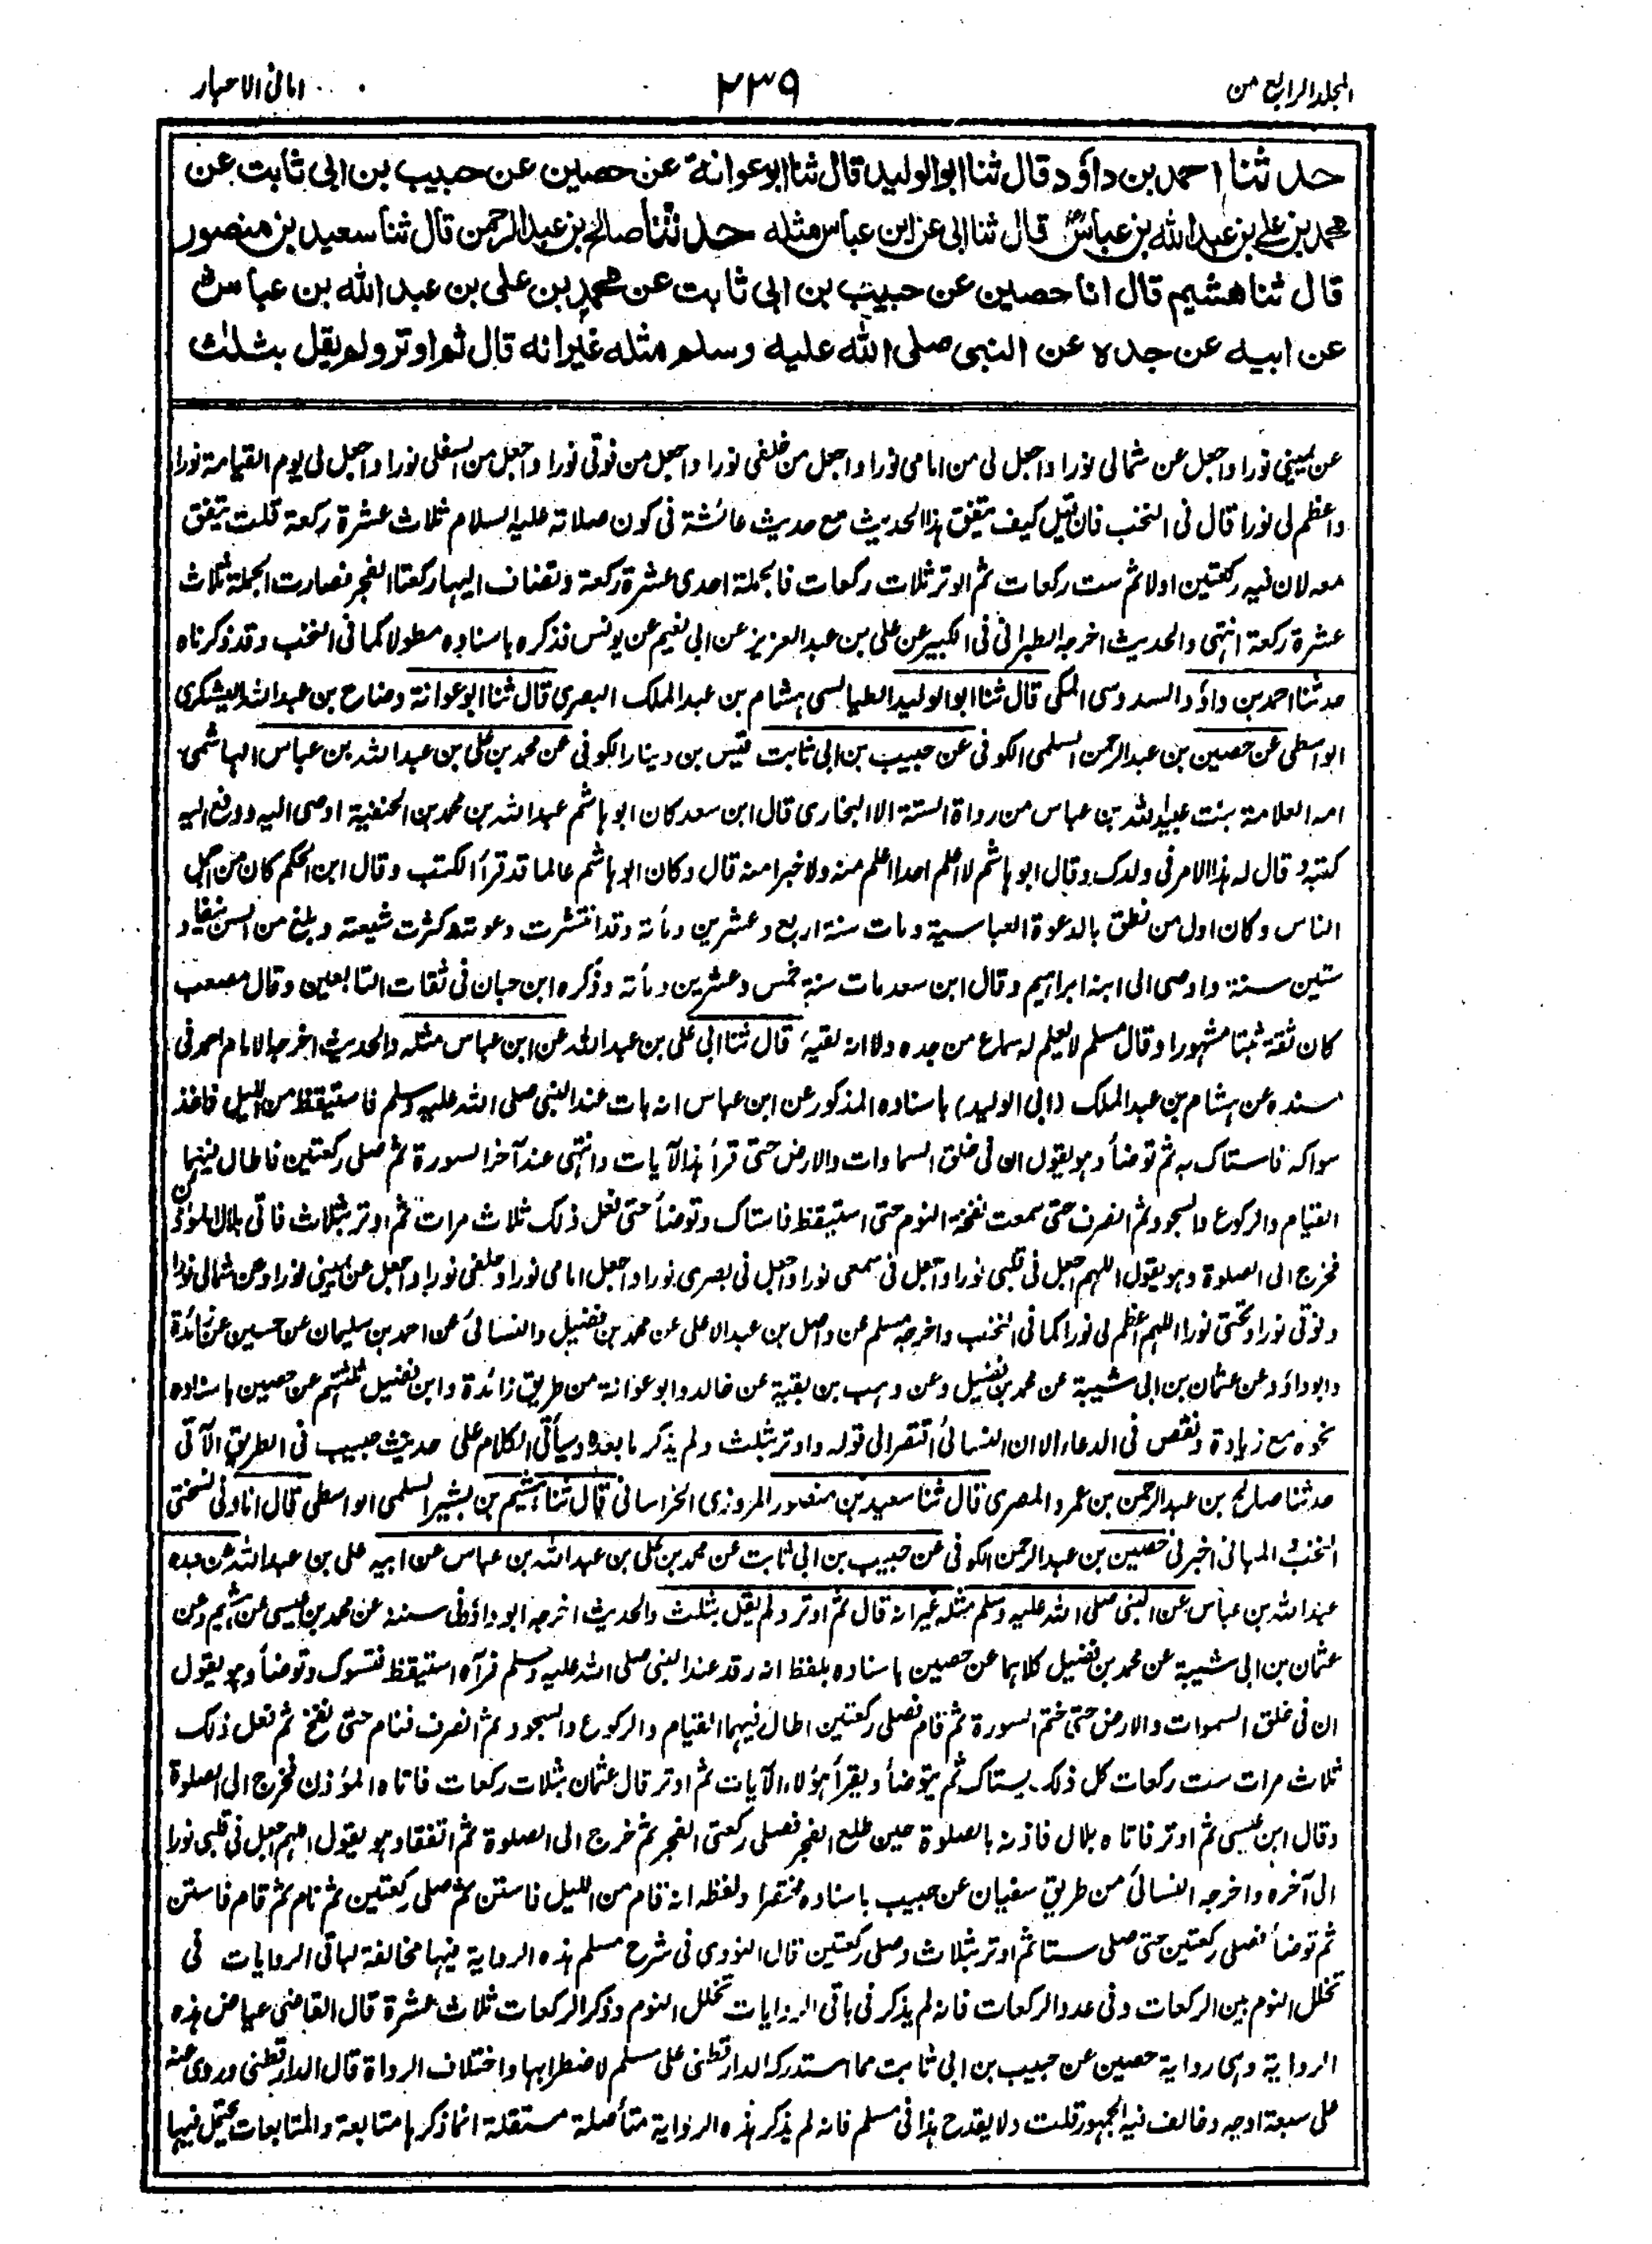 المجلد الرابع من
٢٣٩
امانى الاحبار
حدثنا احمد بن داؤد قال ثنا ابوالوليد قال ثنا ابوعوانة عن حصين عن حبيب بن ابى ثابت عن
محمد بن على بن عبد الله بن عباسؓ قال ثنا ابى عن ابن عباس مثله حدثنا صالح بن عبد الرحمن قال ثنا سعيد بن منصور
قال ثنا هشيم قال انا حصين عن حبيب بن ابى ثابت عن محمد بن على بن عبد الله بن عباسؓ
عن ابيه عن جده عن النبى صلى الله عليه وسلم مثله غير انه قال ثم اوتر ولم يقل بثلٰث
عن يمينى نورا واجعل عن شمالى نورا واجعل لى من امامى نورا واجعل من خلفى نورا واجعل من فوقى نورا واجعل من اسفلى نورا واجعل لى يوم القيامة نورا
واعظم لى نورا قال فى النخب فان قيل كيف يتفق هذا الحديث مع حديث عائشة فى كون صلاته عليه السلام ثلاث عشرة ركعة قلت يتفق
معه لان فيه ركعتين اولا ثم ست ركعات ثم الوتر ثلاث ركعات فالجملة احدى عشرة ركعة وتضاف اليها ركعتا الفجر فصارت الجملة ثلاث
عشرة ركعة انتهى والحديث اخرجه الطبرانى فى الكبير عن على بن عبد العزيز عن ابى نعيم عن يونس فذكره باسناده مطولا كما فى النخب وقد ذكرناه
حدثنا احمد بن داؤد السدوسى المكى قال ثنا ابو الوليد الطيالسى هشام بن عبد الملك البصرى قال ثنا ابو عوانة وضاح بن عبد الله اليشكرى
الواسطى عن حصين بن عبد الرحمن السلمى الكوفى عن حبيب بن ابى ثابت قيس بن دينار الكوفى عن محمد بن على بن عبد الله بن عباس الهاشمى
امه العلامة بنت عبيد الله بن عباس من رواة الستة الا البخارى قال ابن سعد كان ابو هاشم عبد الله بن محمد بن الحنفية اوصى اليه ودفع اليه
كتبه وقال له هذا الامر فى ولدك وقال ابو هاشم لا اعلم احدا اعلم منه ولا خيرا منه قال وكان ابو هاشم عالما قد قرأ الكتب وقال ابن الحكم كان من اجل
الناس وكان اول من نطق بالدعوة العباسية ومات سنة اربع وعشرين ومأته وقد انتشرت دعوته وكثرت شيعته وبلغ من السن نيفا و
ستين سنة واوصى الى ابنه ابراهيم وقال ابن سعد مات سنة خمس وعشرين ومأته وذكره ابن حبان فى ثقات التابعين وقال مصعب
كان ثقة ثبتا مشهورا وقال مسلم لا يعلم له سماع من جده ولا انه لقيه قال ثنا ابى على بن عبد الله عن ابن عباس مثله والحديث اخرجه الامام احمد فى
مسنده عن هشام بن عبد الملك (ابى الوليد) باسناده المذكور عن ابن عباس انه بات عند النبى صلى الله عليه وسلم فاستيقظ من الليل فاخذ
سواكه فاستاك به ثم توضأ وهو يقول ان فى خلق السماوات والارض حتى قرأ هذه الآيات وانتهى عند آخر السورة ثم صلى ركعتين فاطال فيهما
القيام والركوع والسجود ثم انصرف حتى سمعت نفخة النوم حتى استيقظ فاستاك وتوضأ حتى فعل ذلك ثلاث مرات ثم اوتر بثلاث فاتى بلال المؤذن
فخرج الى الصلوة وهو يقول اللهم اجعل فى قلبى نورا واجعل فى سمعى نورا واجعل فى بصرى نورا واجعل امامى نورا وخلفى نورا واجعل عن يمينى نورا وعن شمالى نورا
وفوقى نورا وتحتى نورا اللهم اعظم لى نورا كما فى النخب واخرجه مسلم عن واصل بن عبد الاعلى عن محمد بن فضيل والنسائى عن احمد بن سليمان عن حسين عن زائدة
وابو داؤد عن عثمان بن ابى شيبة عن محمد بن فضيل وعن وهب بن بقية عن خالد وابو عوانة من طريق زائدة وابن فضيل ثلثتهم عن حصين باسناده
نحوه مع زيادة ونقص فى الدعاء الا ان النسائى اقتصر الى قوله واوتر بثلث ولم يذكر ما بعده وسيأتى الكلام على حديث حبيب فى الطريق الآتى
حدثنا صالح بن عبد الرحمن بن عمرو المصرى قال ثنا سعيد بن منصور المروزى الخراسانى قال ثنا هشيم بن بشير السلمى الواسطى قال انا وفى نسختى
النخب والمبانى اخبرنى حصين بن عبد الرحمن الكوفى عن حبيب بن ابى ثابت عن محمد بن على بن عبد الله بن عباس عن ابيه على بن عبد الله عن جده
عبد الله بن عباس عن النبى صلى الله عليه وسلم مثله غير انه قال ثم اوتر ولم يقل بثلث والحديث اخرجه ابو داؤد فى سننه عن محمد بن عيسى عن هشيم وعن
عثمان بن ابى شيبة عن محمد بن فضيل كلاهما عن حصين باسناده بلفظ انه رقد عند النبى صلى الله عليه وسلم فرآه استيقظ فتسوك وتوضأ وهو يقول
ان فى خلق السموات والارض حتى ختم السورة ثم قام فصلى ركعتين اطال فيهما القيام والركوع والسجود ثم انصرف فنام حتى نفخ ثم فعل ذلك
ثلاث مرات ست ركعات كل ذلك يستاك ثم يتوضأ ويقرأ هؤلاء الآيات ثم اوتر قال عثمان بثلاث ركعات فاتاه المؤذن فخرج الى الصلوة
وقال ابن عيسى ثم اوتر فاتاه بلال فاذنه بالصلوة حين طلع الفجر فصلى ركعتى الفجر ثم خرج الى الصلوة ثم اتفقا وهو يقول اللهم اجعل فى قلبى نورا
الى آخره واخرجه النسائى من طريق سفيان عن حبيب باسناده مختصرا ولفظه انه قام من الليل فاستن ثم صلى ركعتين ثم نام ثم قام فاستن
ثم توضأ فصلى ركعتين حتى صلى ستا ثم اوتر بثلاث وصلى ركعتين قال النووى فى شرح مسلم هذه الرواية فيها مخالفة لباقى الروايات فى
تخلل النوم بين الركعات وفى عدد الركعات فانه لم يذكر فى باقى الروايات تخلل النوم وذكر الركعات ثلاث عشرة قال القاضى عياض هذه
الرواية وهى رواية حصين عن حبيب بن ابى ثابت مما استدركه الدارقطنى على مسلم لاضطرابها واختلاف الرواة قال الدارقطنى وروى عنه
على سبعة اوجه وخالف فيه الجمهور قلت ولا يقدح هذا فى مسلم فانه لم يذكر هذه الرواية متأصلة مستقلة انما ذكرها متابعة والمتابعات يحتمل فيها